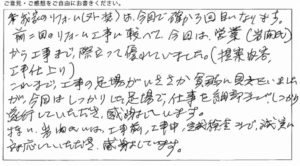 ご意見・ご感想をご自由にお書きください。
我家のリフォーム(外装)は、今回で確か3回目になります。
前二回のリフォーム工事に較べて、今回は、営業
から工事まで、際立って優れていました。(提案内容、
工事仕上り)
これまで、工事の足場がいささか
が、今回はしっかりした足場で、仕事を細部までしっかり
していただき、感謝しています。
特に、さんには、工事前、工事中、検査まで、誠実に
対応していただき、感謝しています。